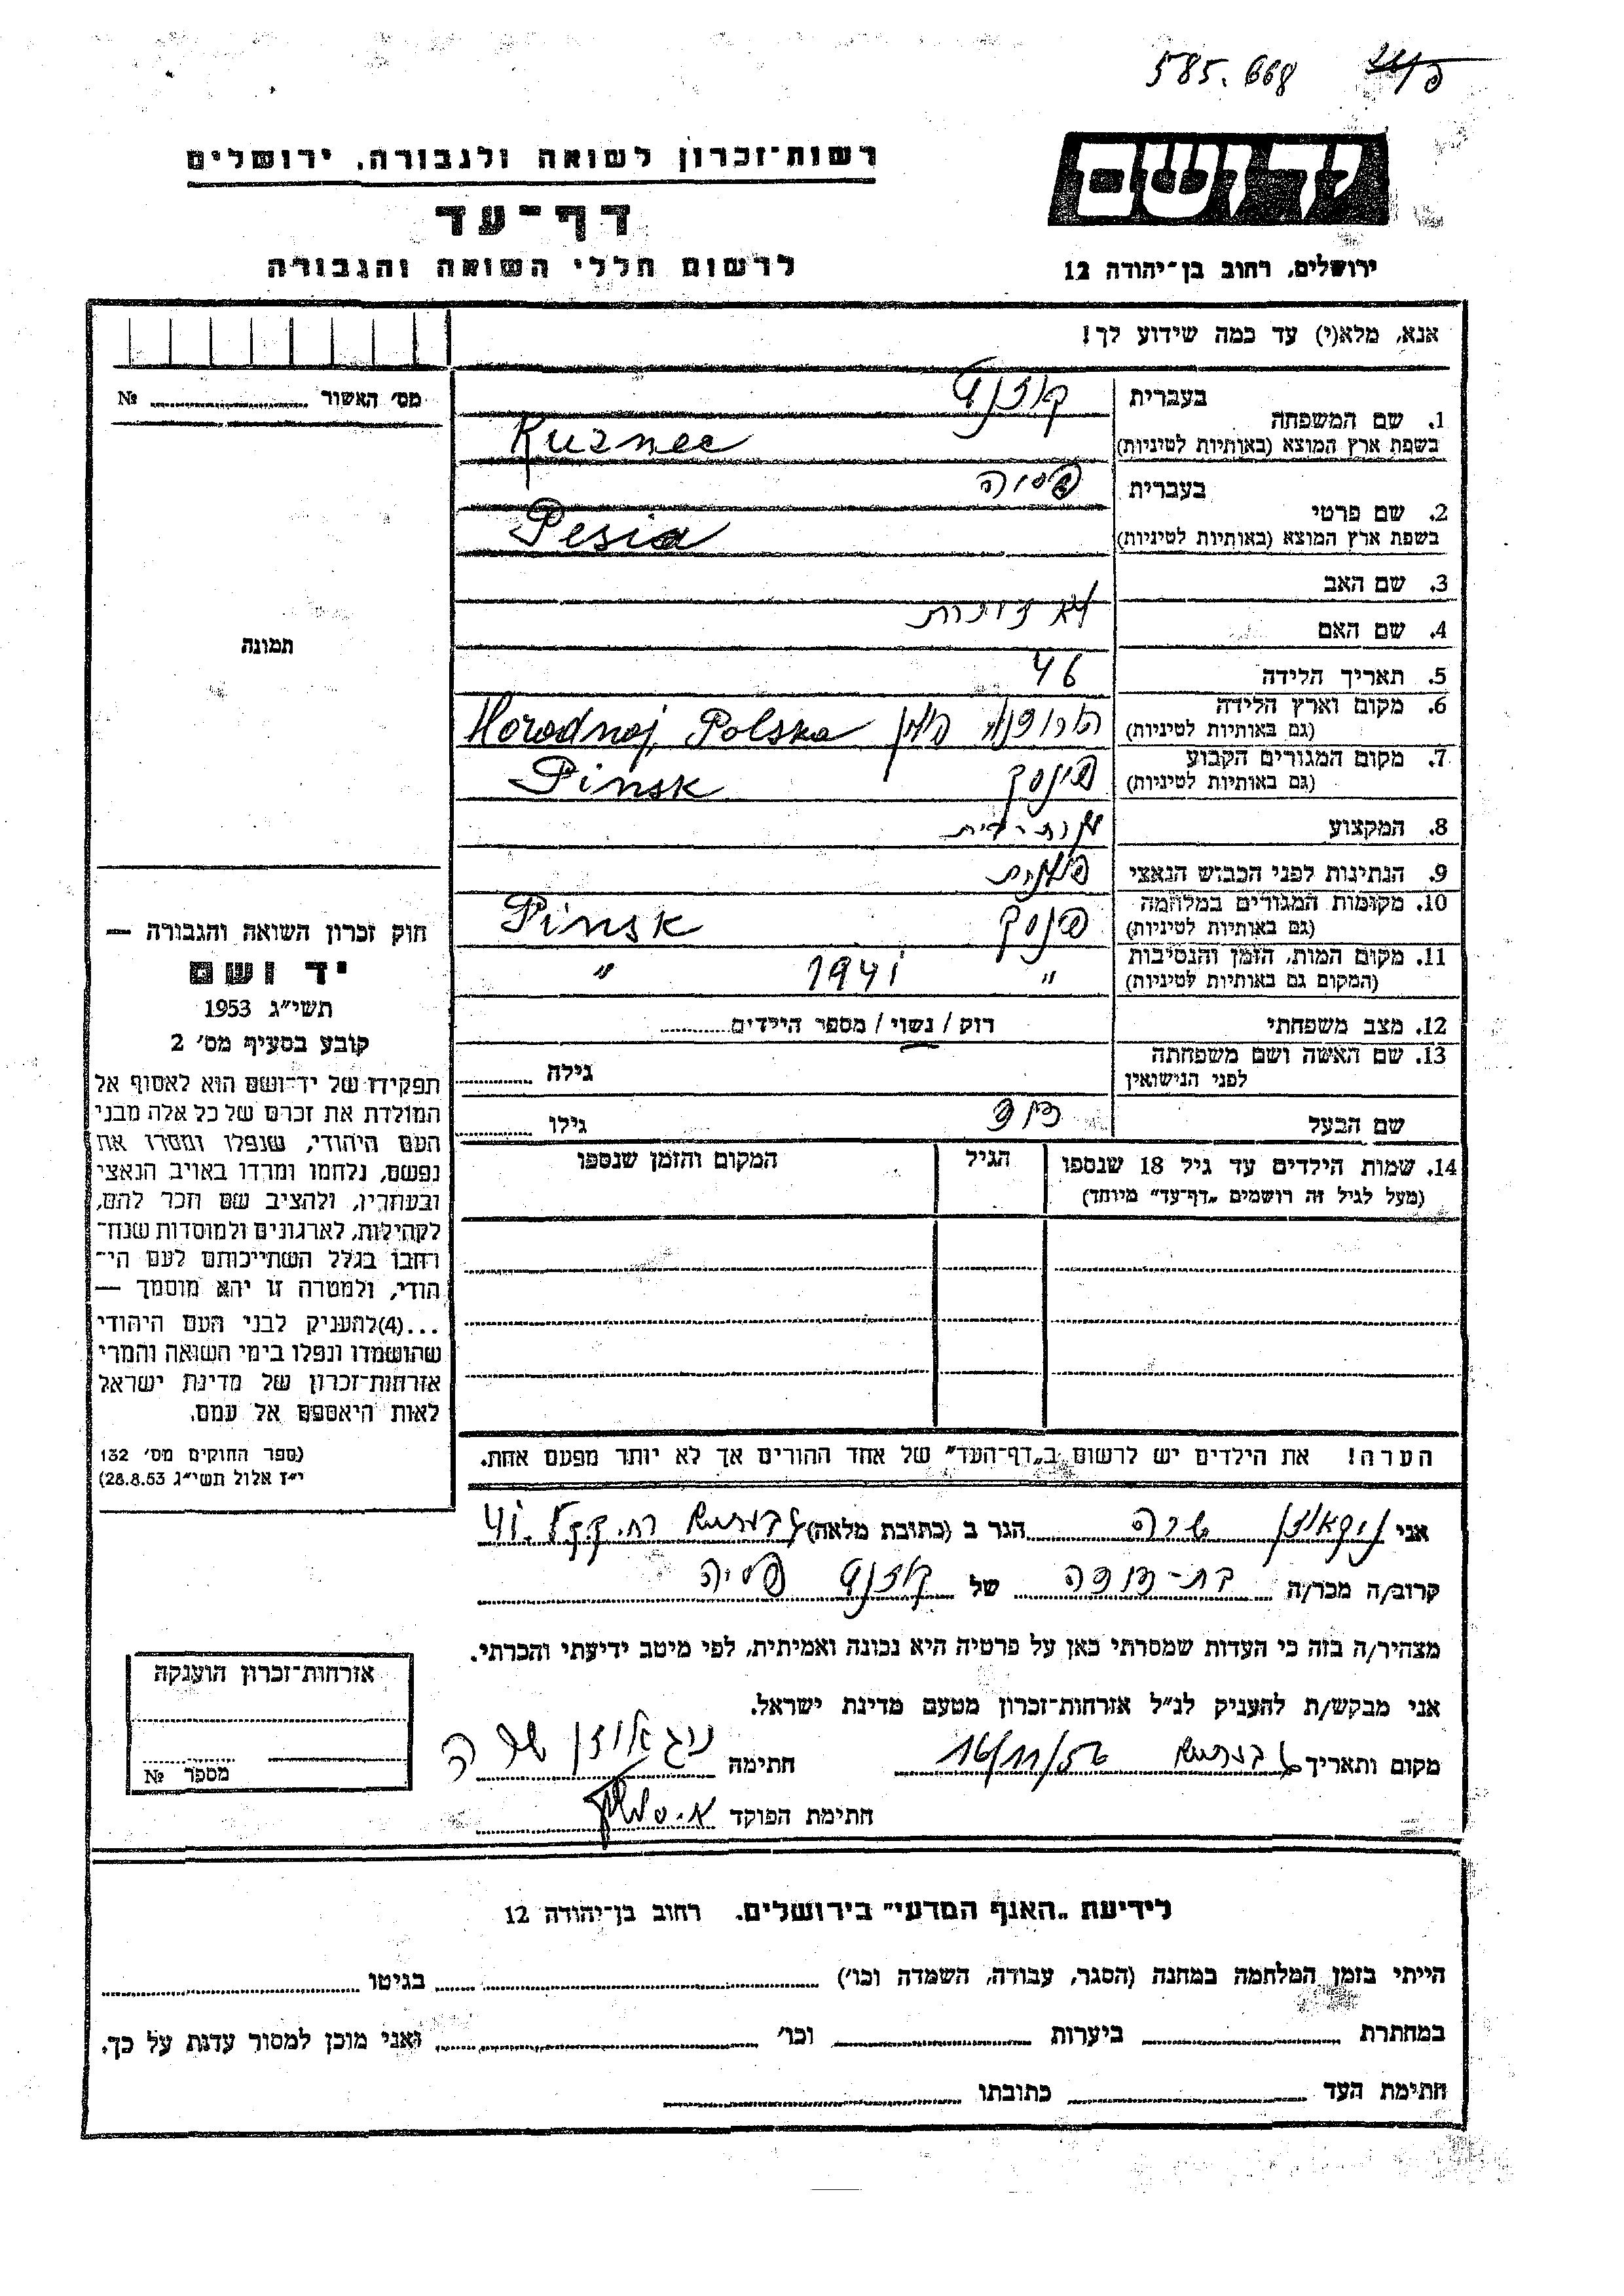 585.668
יד ושם
רשות־זכרון לשואה ולגבורה, ירושלים
דף־עד
לרשום חללי השואה והגבורה
ירושלים, רחוב בן־יהודה 12
אנא, מלא(י) עד כמה שידוע לך!
מס׳ האשור № 
1. שם המשפחה בעברית קוזנץ
בשפת ארץ המוצא (באותיות לטיניות) Kuznec
2. שם פרטי בעברית פסיה
בשפת ארץ המוצא (באותיות לטיניות) Pesia
3. שם האב
4. שם האם
5. תאריך הלידה 46
6. מקום וארץ הלידה
(גם באותיות לטיניות) Horodnoj, Polska
7. מקום המגורים הקבוע פינסק
(גם באותיות לטיניות) Pinsk
8. המקצוע
9. הנתינות לפני הכבוש הנאצי פולנית
10. מקומות המגורים במלחמה פינסק
(גם באותיות לטיניות) Pinsk
11. מקום המות, הזמן והנסיבות " 1941 "
(המקום גם באותיות לטיניות)
12. מצב משפחתי רוק / נשוי / מספר הילדים
13. שם האשה ושם משפחתה
לפני הנישואין גילה
שם הבעל גילו
14. שמות הילדים עד גיל 18 שנספו הגיל המקום והזמן שנספו
(מעל לגיל זה רושמים „דף־עד" מיוחד)
הערה! את הילדים יש לרשום ב„דף־העד" של אחד ההורים אך לא יותר מפעם אחת.
תמונה
חוק זכרון השואה והגבורה —
יד ושם
תשי"ג 1953
קובע בסעיף מס׳ 2
תפקידו של יד־ושם הוא לאסוף אל
המולדת את זכרם של כל אלה מבני
העם היהודי, שנפלו ומסרו את
נפשם, נלחמו ומרדו באויב הנאצי
ובעוזריו, ולהציב שם וזכר להם,
לקהילות, לארגונים ולמוסדות שנח־
רבו בגלל השתייכותם לעם הי־
הודי, ולמטרה זו יהא מוסמך —
...(4)להעניק לבני העם היהודי
שהושמדו ונפלו בימי השואה והמרי
אזרחות־זכרון של מדינת ישראל
לאות היאספם אל עמם.
(ספר החוקים מס׳ 132
י"ז אלול תשי"ג 28.8.53)
אני שרה הגר ב (כתובת מלאה) רח.
קרוב/ה מכר/ה בת־דודה של קוזנץ פסיה
מצהיר/ה בזה כי העדות שמסרתי כאן על פרטיה היא נכונה ואמיתית, לפי מיטב ידיעתי והכרתי.
אני מבקש/ת להעניק לנ"ל אזרחות־זכרון מטעם מדינת ישראל.
מקום ותאריך 16/11/56 חתימה שרה
חתימת הפוקד
אזרחות־זכרון הוענקה
מספר №
לידיעת „האגף המדעי" בירושלים. רחוב בן־יהודה 12
הייתי בזמן המלחמה במחנה (הסגר, עבודה, השמדה וכו׳) בגיטו
במחתרת ביערות וכו׳ ואני מוכן למסור עדות על כך.
חתימת העד כתובתו